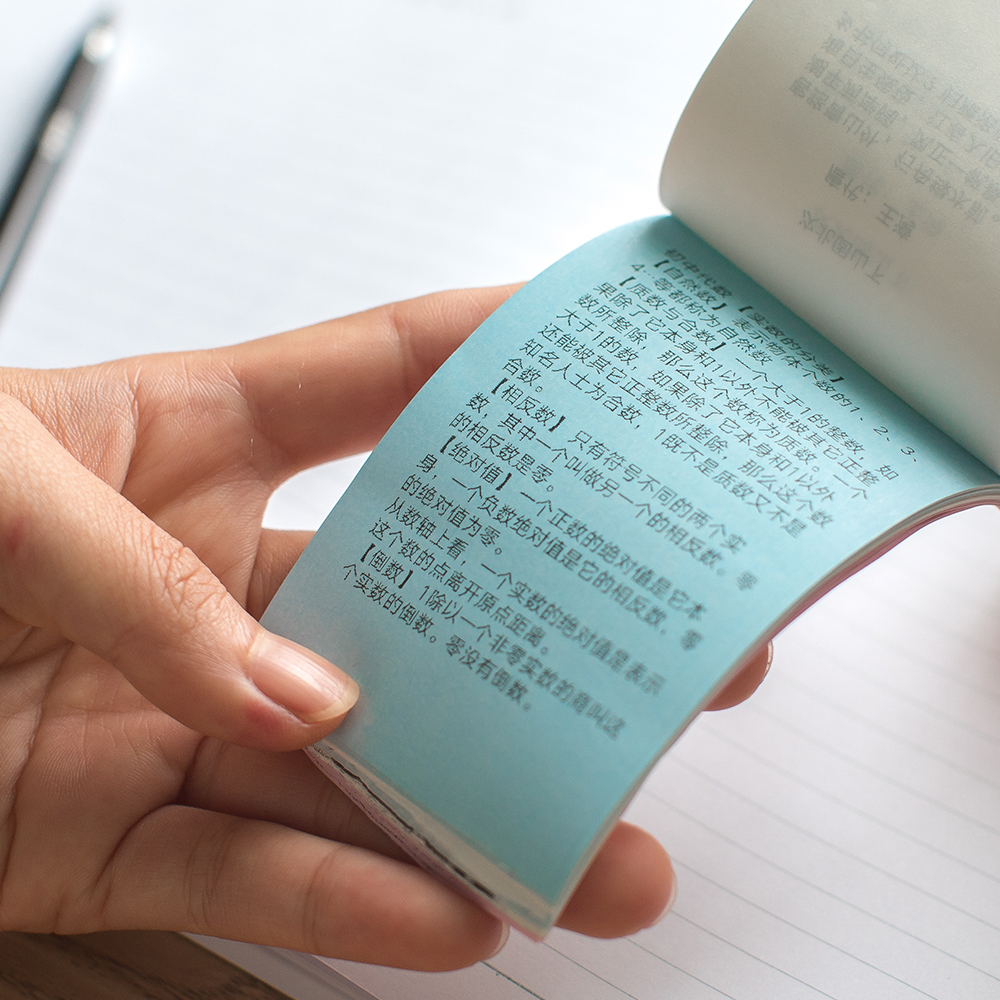 初中代数 【实数的分类】
【自然数】 表示物体个数的1、2、3、
4…等都称为自然数
【质数与合数】一个大于1的整数，如
果除了它本身和1以外不能被其它正整
数所整除，那么这个数称为质数。一个
大于1的数，如果除了它本身和1以外
还能被其它正整数所整除，那么这个数
知名人士为合数，1既不是质数又不是
合数。
【相反数】 只有符号不同的两个实
数，其中一个叫做另一个的相反数。零
的相反数是零。
【绝对值】一个正数的绝对值是它本
身，一个负数绝对值是它的相反数，零
的绝对值为零。
从数轴上看，一个实数的绝对值是表示
这个数的点离开原点距离。
【倒数】 1除以一个非零实数的商叫这
个实数的倒数。零没有倒数。